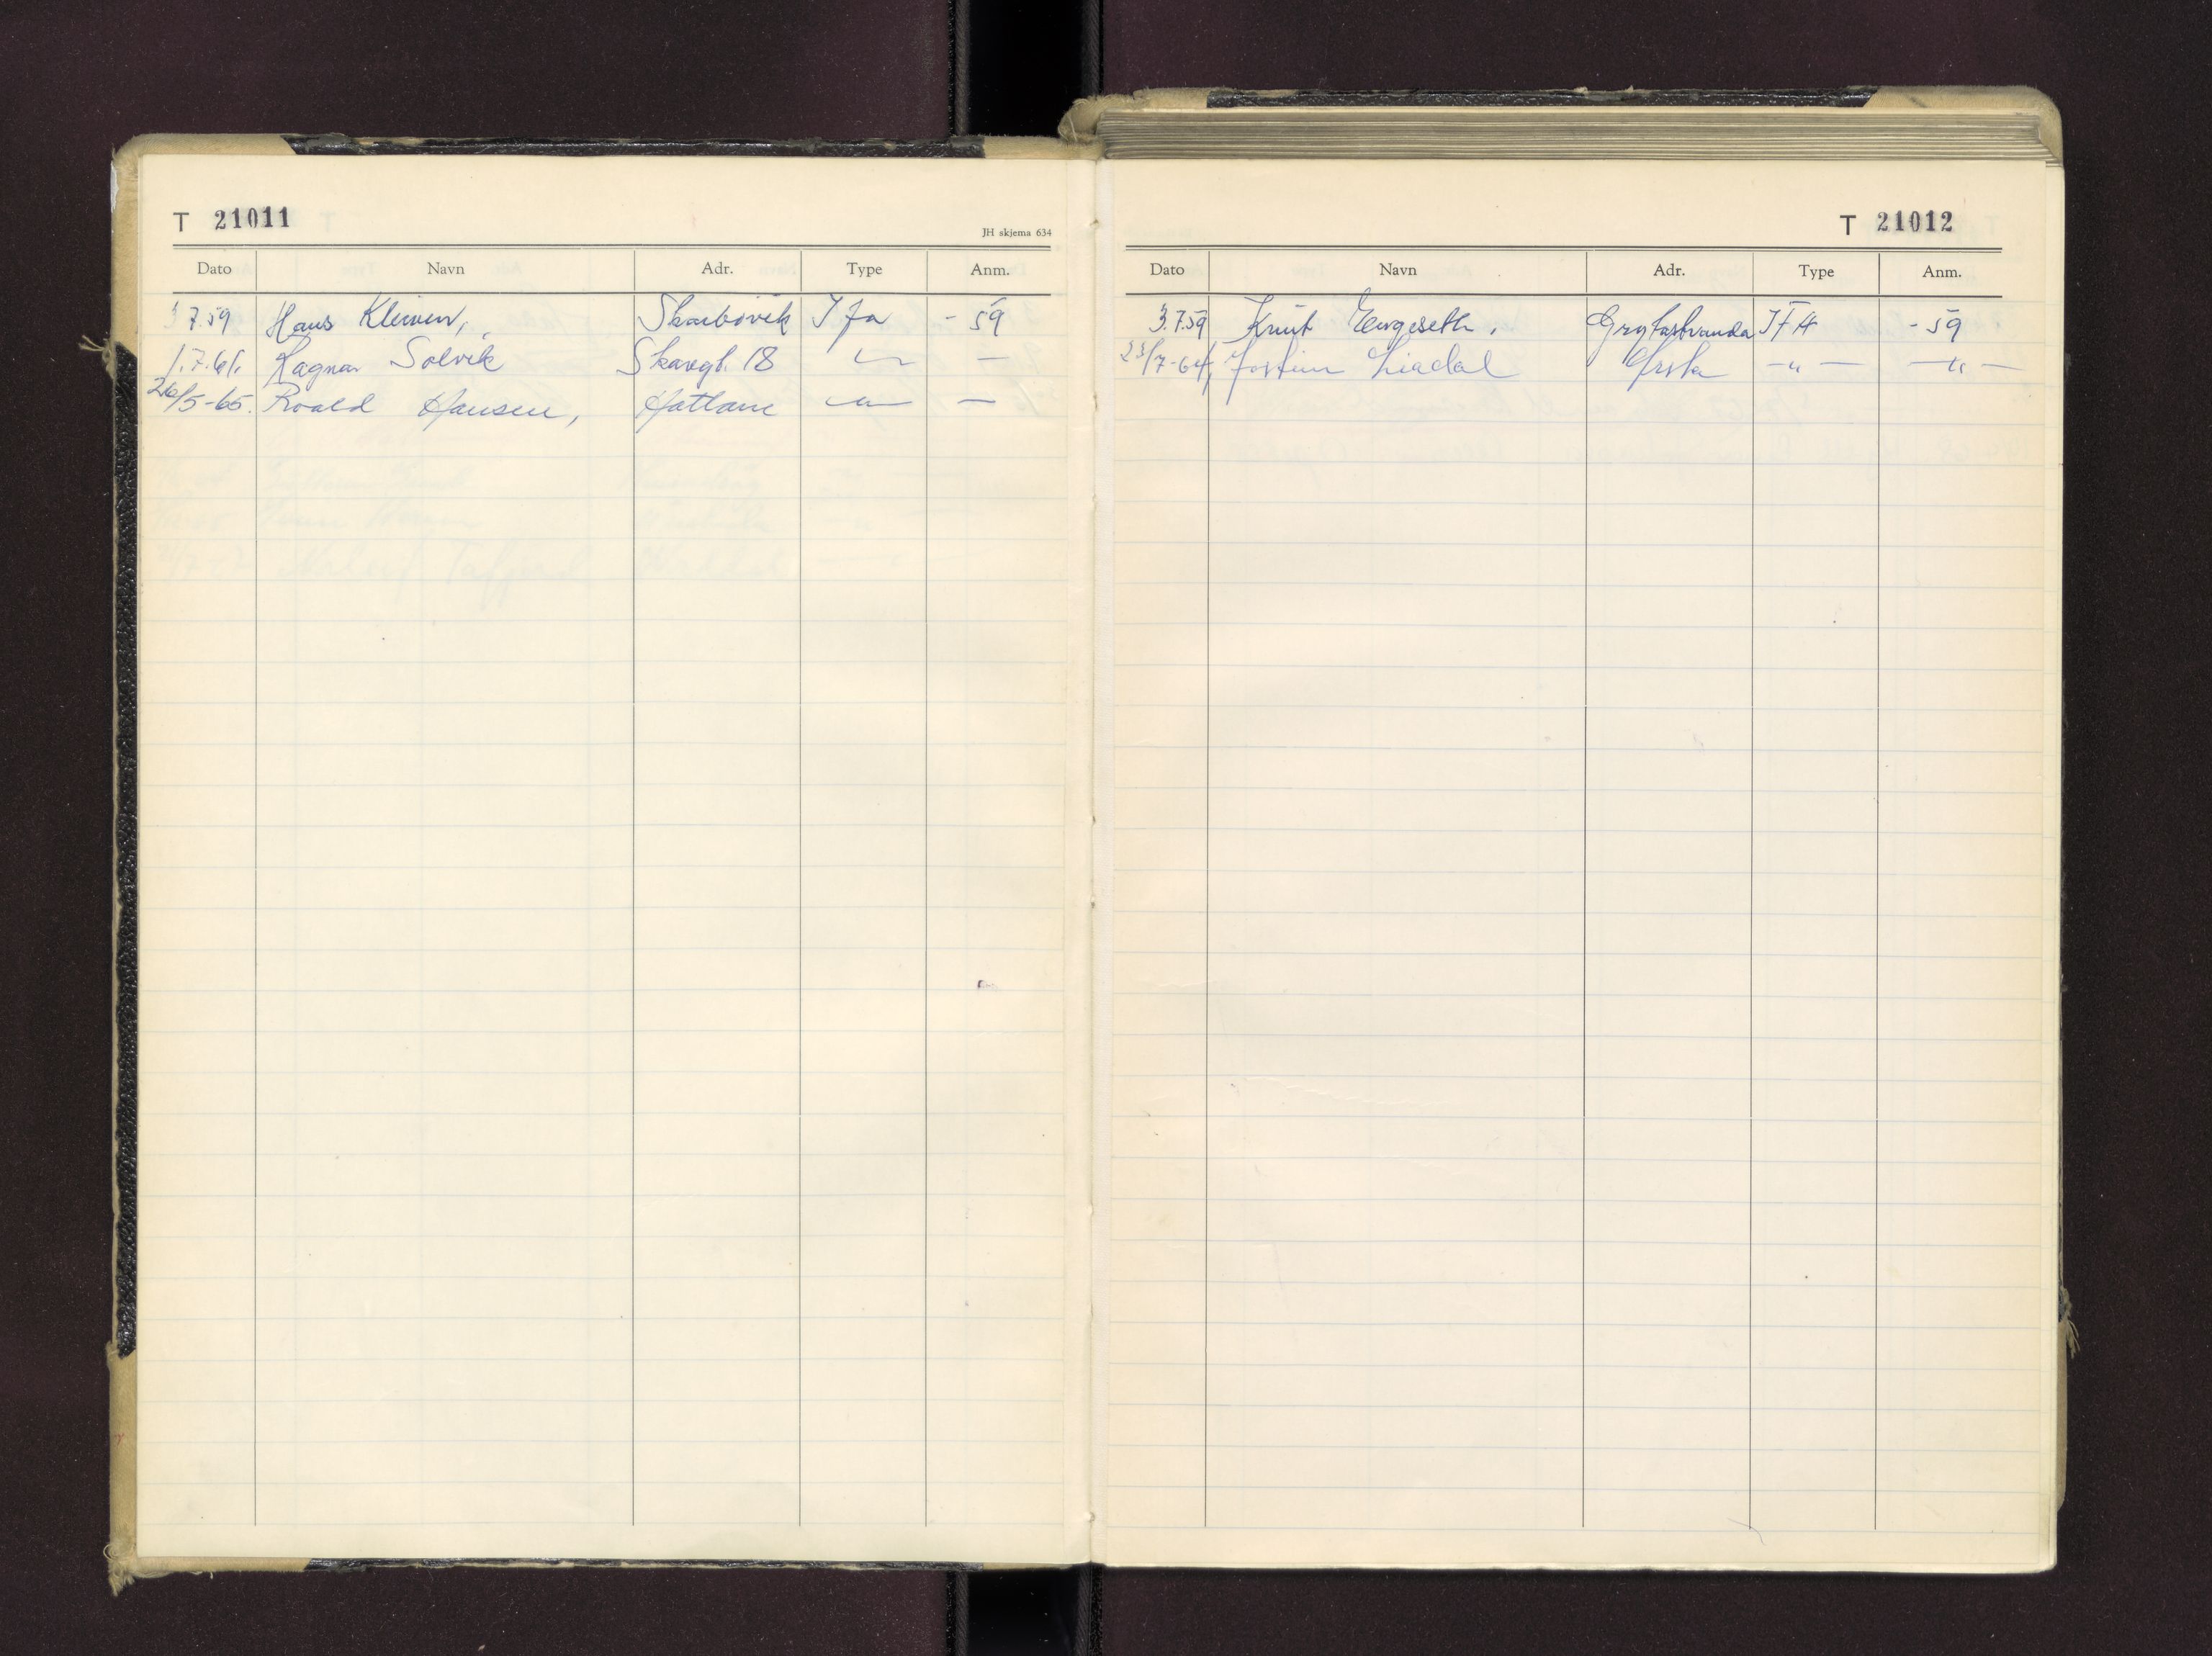 T 21011
JH skjema 634
Dato Navn Adr. Type Anm.
3.7.59 Hans Kleiven, Skarbövik Ifa - 59
1.7.61. Ragnar Solvik Skaregt. 18 — " — —
26/5-65. Roald Hansen, Hatlane — " — —
T 21012
Dato Navn Adr. Type Anm.
3.7.59 Knut Engeseth, Grytastranda IFA - 59
23/7-64, Jostein Liadal Ørsta — " — — " —